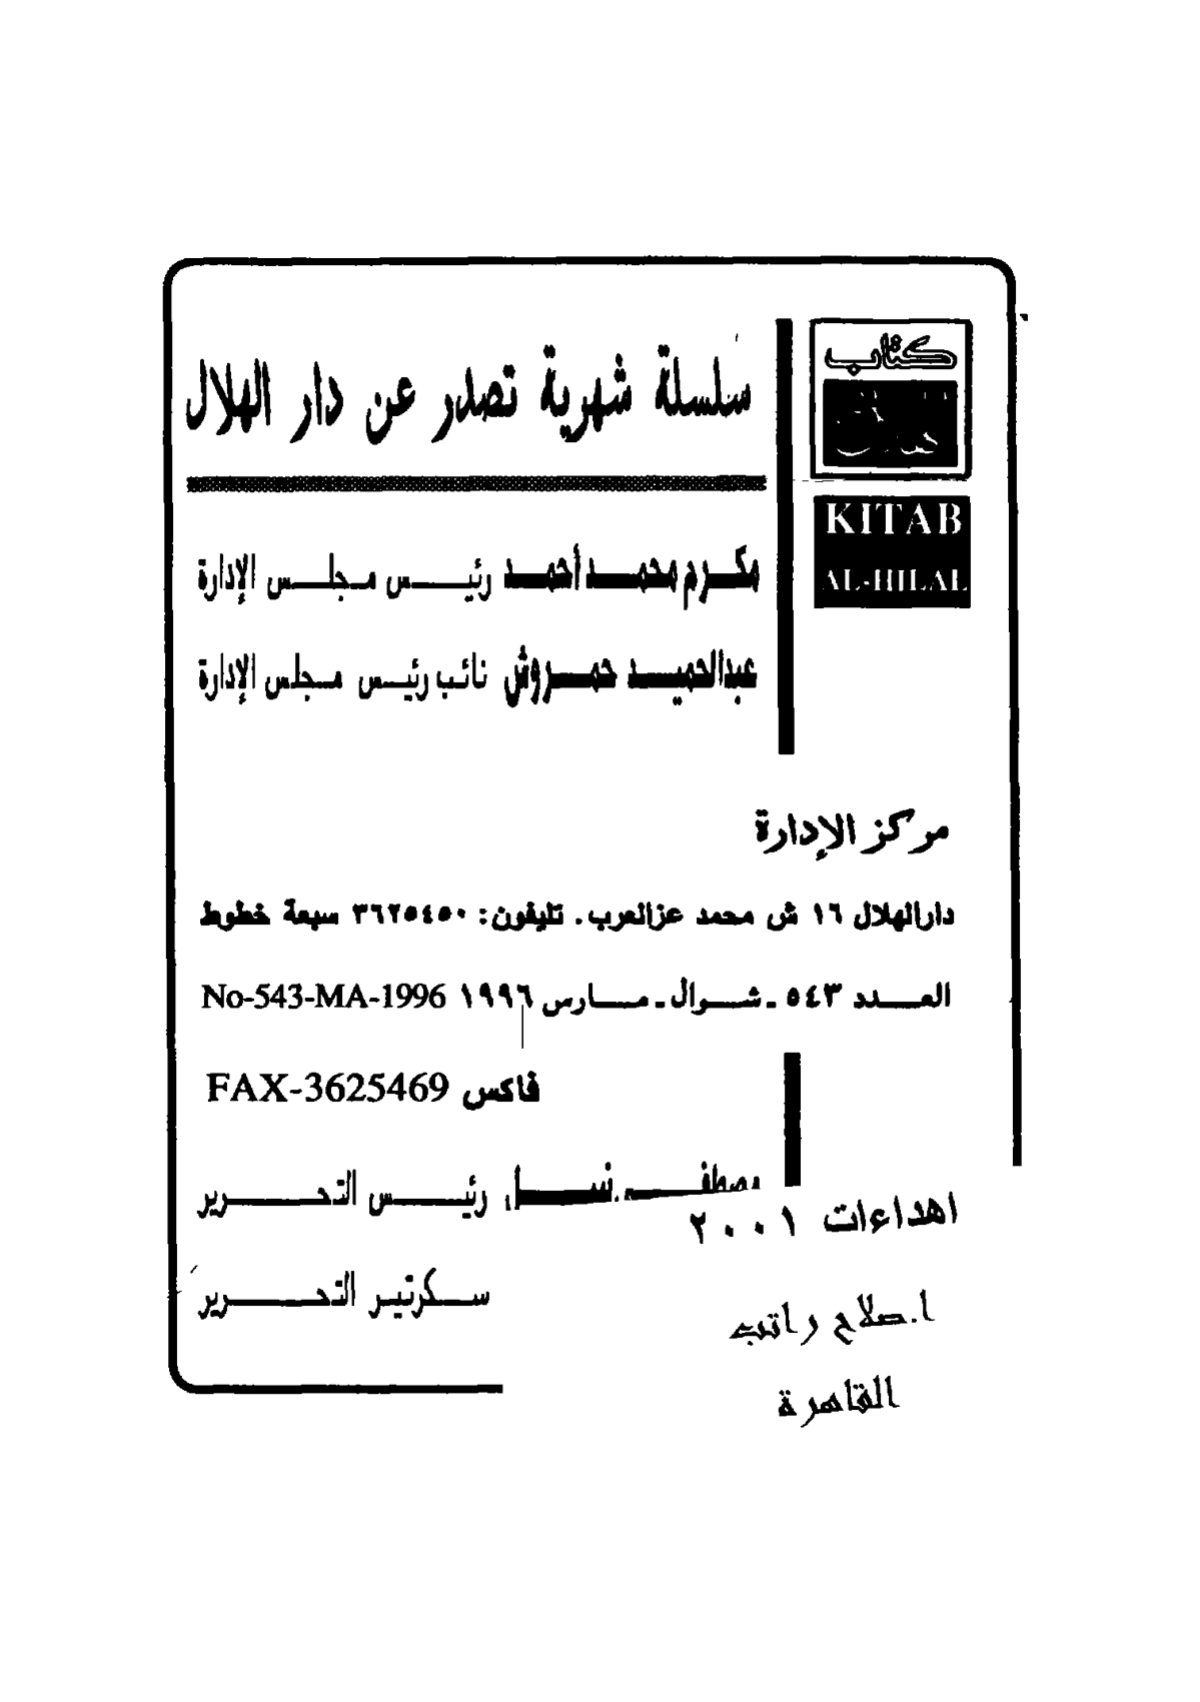 كتاب
الهلال
KITAB
AL-HILAL
سلسلة شهرية تصدر عن دار الهلال
مكرم محمد أحمد رئيس مجلس الإدارة
عبدالحميد حمروش نائب رئيس مجلس الإدارة
مركز الإدارة
دارالهلال ١٦ ش محمد عزالعرب. تليفون: ٣٦٢٥٤٥٠ سبعة خطوط
العدد ٥٤٣ ـ شوال ـ مارس ١٩٩٦ No-543-MA-1996
فاكس FAX-3625469
رئيس التحرير
سكرتير التحرير
اهداءات ٢٠٠١
ا.صلاح راتب
القاهرة